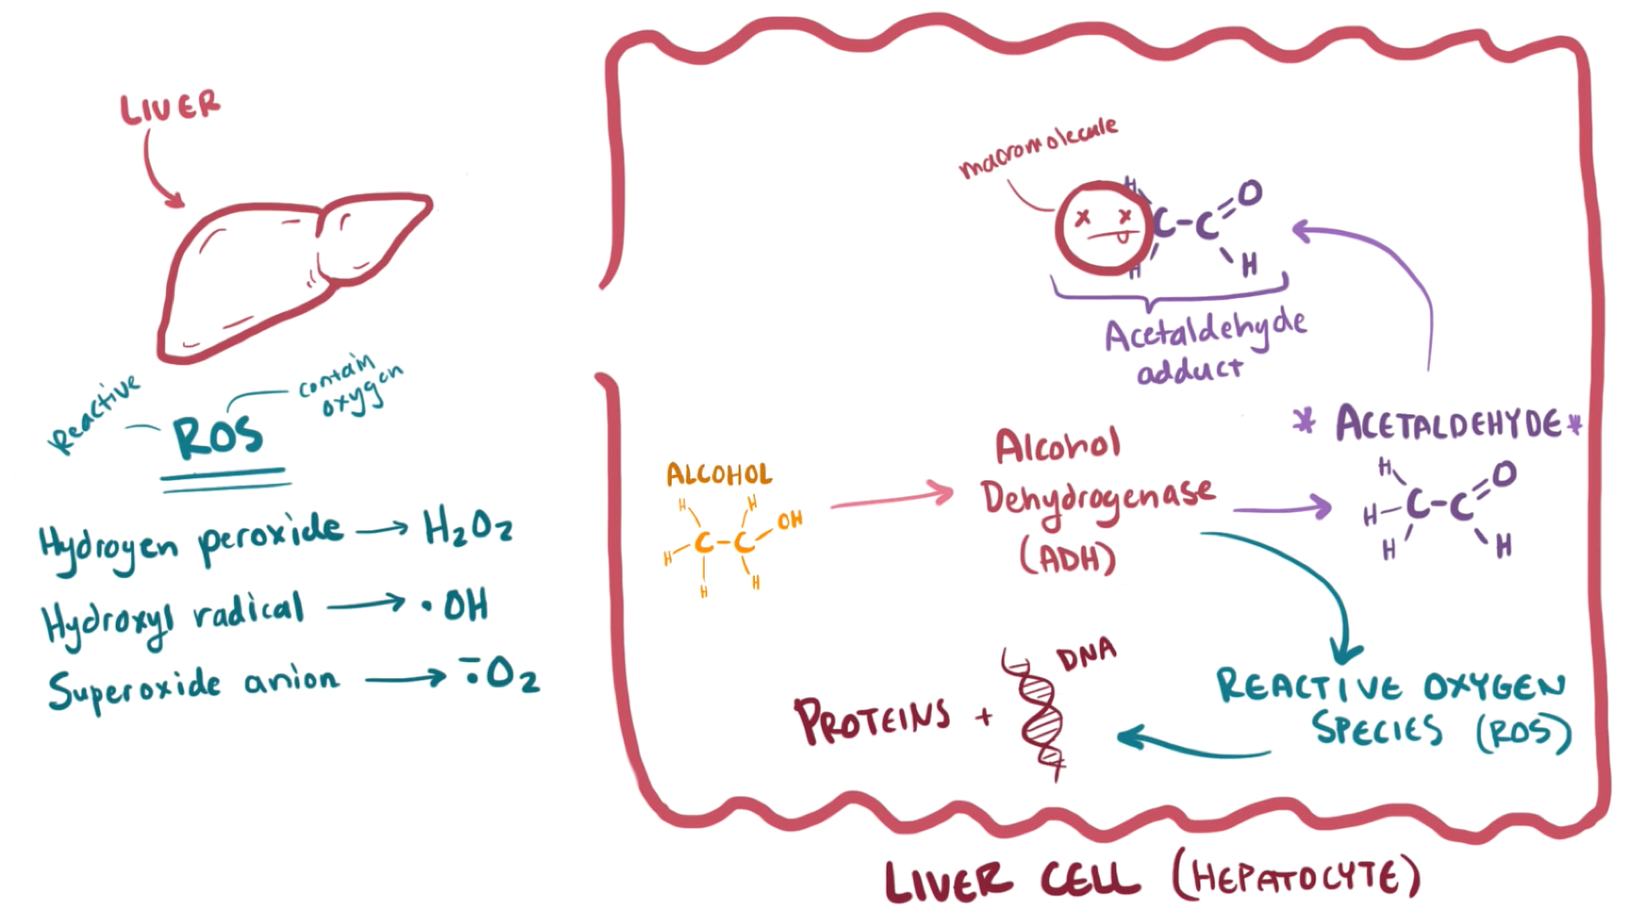 LIVER
Reactive
ROS
contain
oxygen
Hydrogen peroxide → H₂O₂
Hydroxyl radical → •OH
Superoxide anion → ⁻:O₂
macromolecule
x x
H
C-C=O
H
H
Acetaldehyde
adduct
ALCOHOL
H H
C-C OH
H
H H
Alcohol
Dehydrogenase
(ADH)
* ACETALDEHYDE*
H
C-C=O
H
H H
REACTIVE OXYGEN
SPECIES (ROS)
PROTEINS +
DNA
LIVER CELL (HEPATOCYTE)